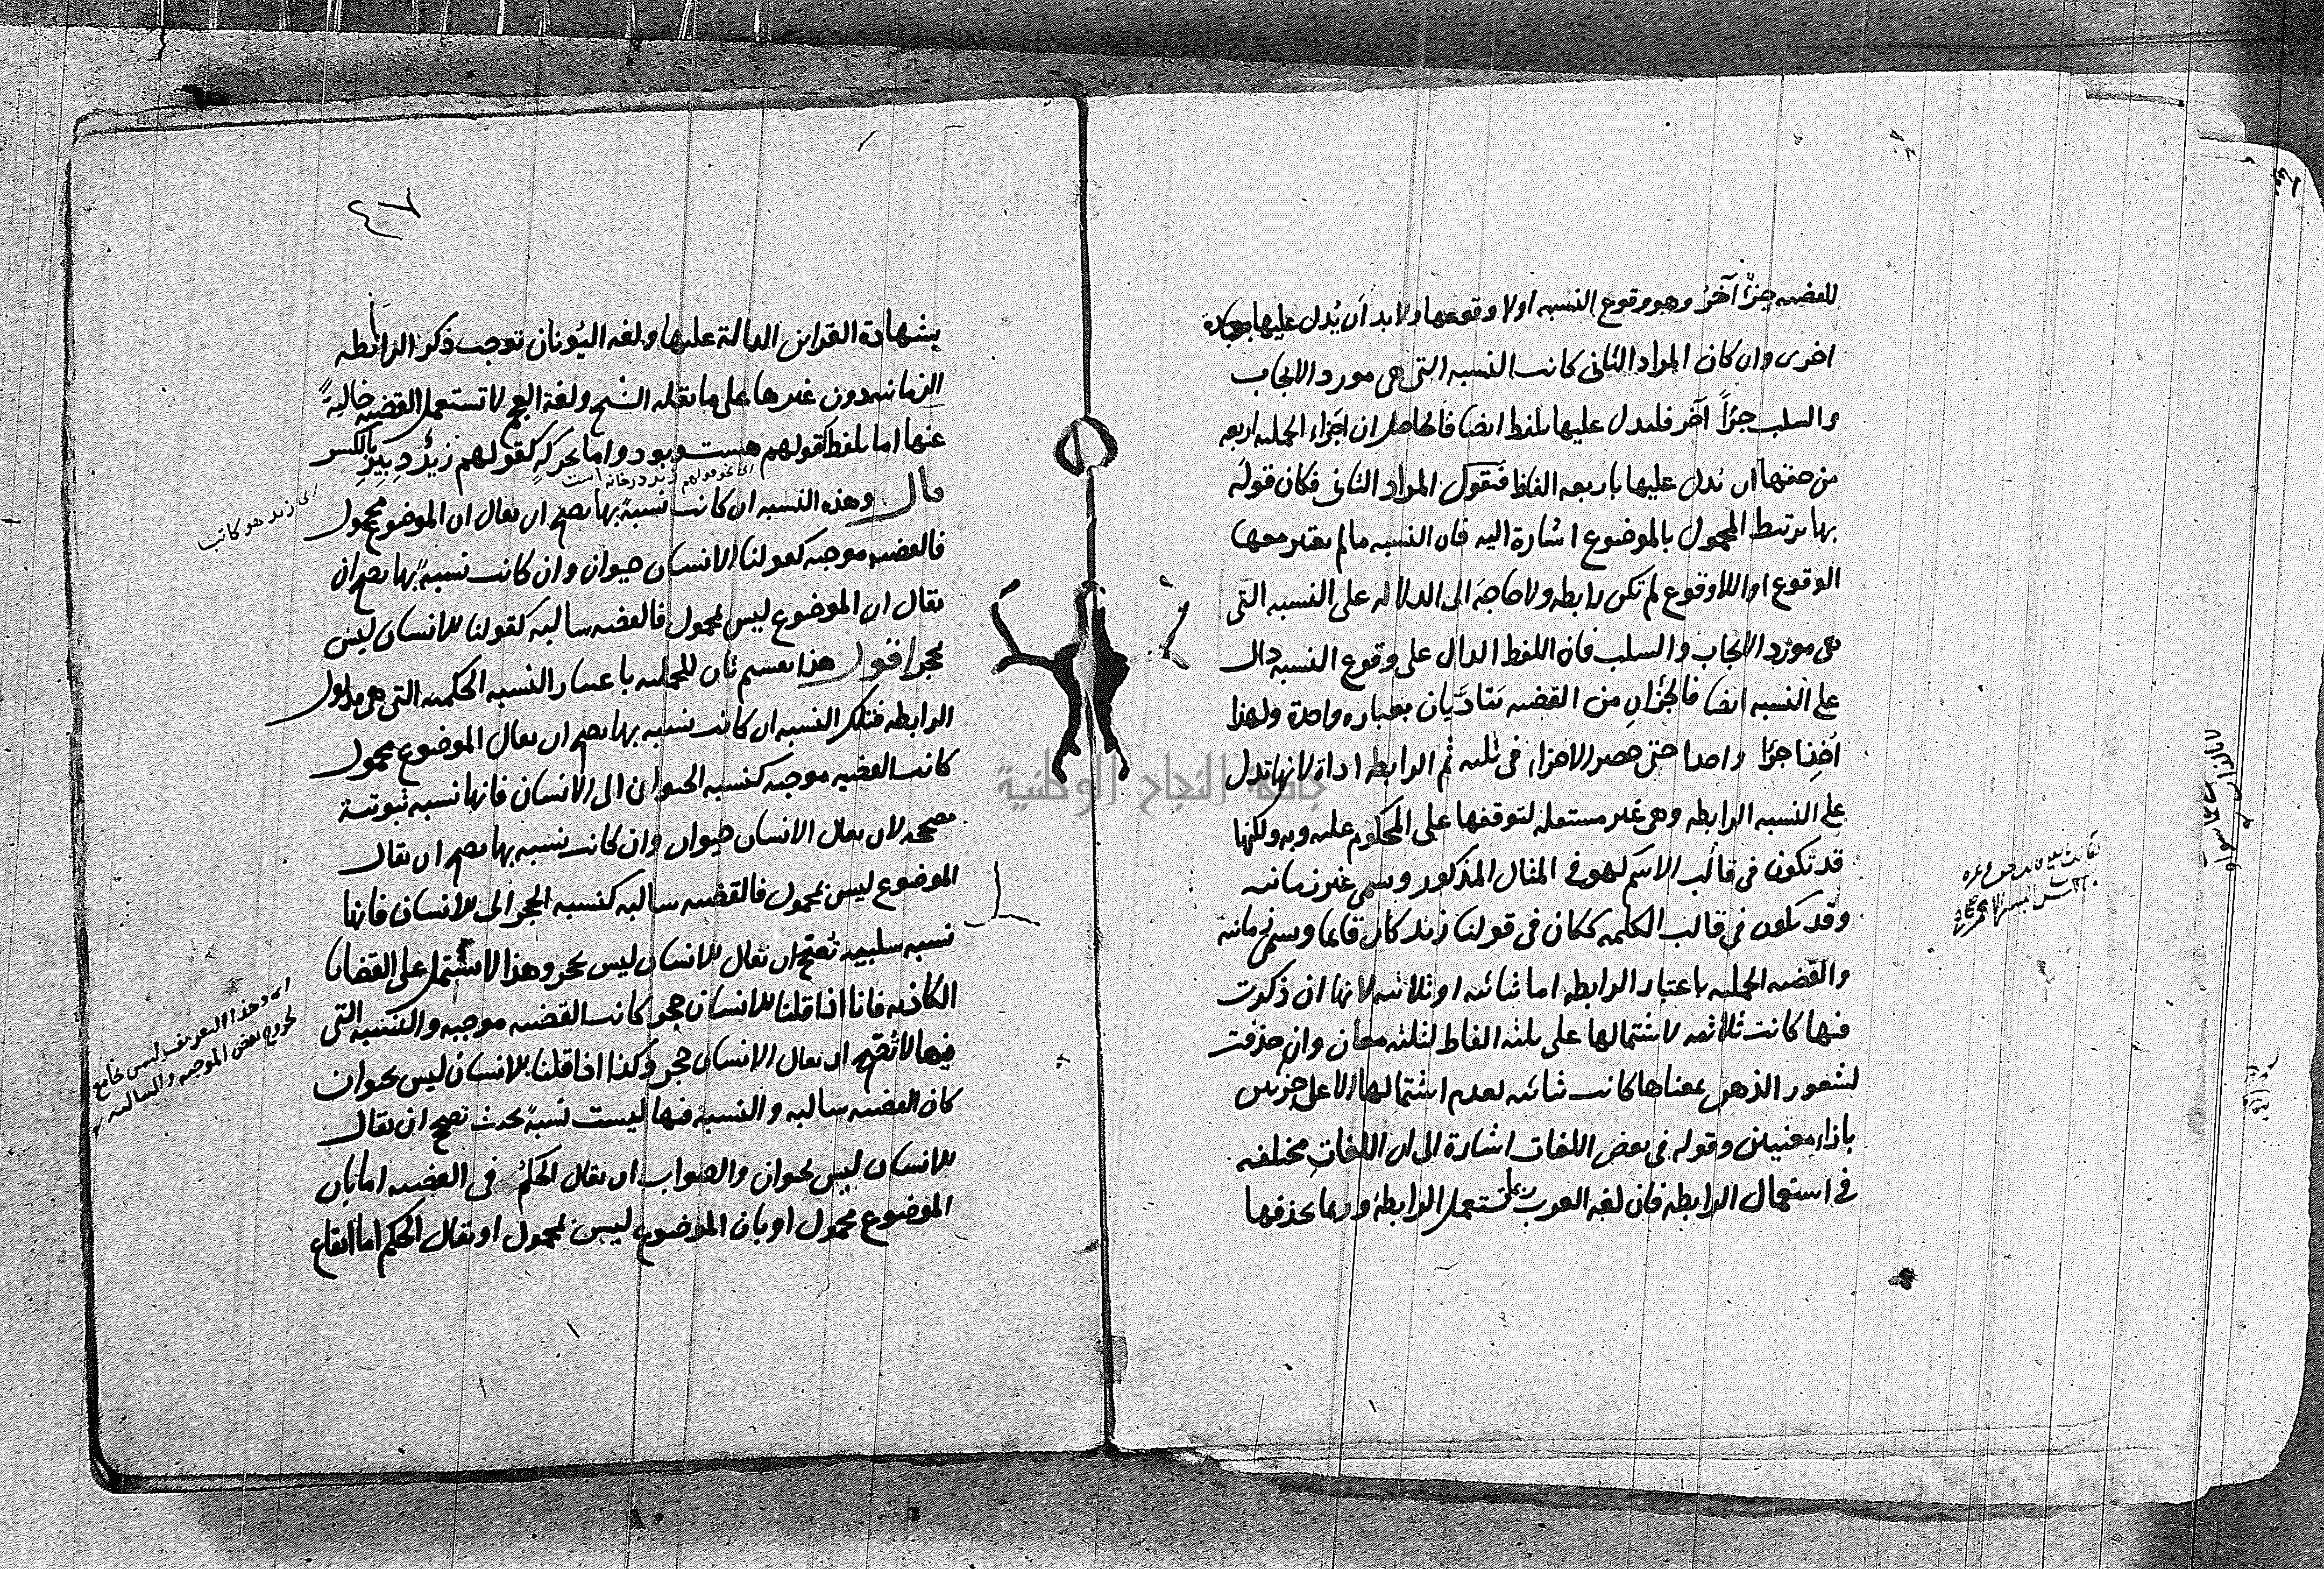 للقضيه جزءًا آخرُ وهو وقوع النسبه اولا وقوعها ولا بد أن يُدل عليها بعبارة
اخرى وان كان المراد الثانى كانت النسبه التى هى مورد الايجاب
والسلب جزءًا آخر فليدل عليها بلفظ ايضا فالحاصل ان اجزاء الحمليه اربعه
من حقها ان يدل عليها باربعه الفاظ فنقول المراد الثانى فكان قوله
بها يرتبط المحمول بالموضوع اشارة اليه فان النسبه مالم يعتبر معها
الوقوع او اللاوقوع لم تكن رابطه ولا حاجة الى الدلاله على النسبه التى
هى مورد الايجاب والسلب فان اللفظ الدال على وقوع النسبه دال
على النسبه ايضا فالجزآن من القضيه يتأديان بعباره واحدة ولهذا
اُخِذا جزءًا واحدا حتى حصر الاجزاء فى ثلثه ثم الرابطه اداة لانها تدل
على النسبه الرابطه وهى غير مستقله لتوقفها على المحكوم عليه وبه ولكنها
قد تكون فى قالب الاسم كهو فى المثال المذكور وسمى غير زمانيه
وقد تكون فى قالب الكلمه ككان فى قولنا زيد كان قايما وسمى زمانيه
والقضيه الحمليه باعتبار الرابطه اما ثنائيه او ثلاثيه لانها ان ذكرت
فيها كانت ثلاثيه لاشتمالها على ثلثه الفاظ لثلثه معان وان حذفت
لشعور الذهن بمعناها كانت ثنائيه لعدم اشتمالها الا على جزئين
بازاء معنيين وقوله فى بعض اللغات اشارة الى ان اللغات مختلفه
فى استعمال الرابطه فان لغه العرب ربما تستعمل الرابطه وربما يحذفها
٤٧
بشهادة القراين الدالة عليها ولغه اليُونان توجب ذكر الرابطه
الزمانيه دون غيرها على ما نقله الشيخ ولغة العجم لا تستعمل القضيه خاليةً
عنها اما بلفظ كقولهم هست وبود واما بحركه كقولهم زيدُ دبيرِ بالكسر
قال وهذه النسبه ان كانت نسبةً بها يصح ان يقال ان الموضوع محمول
فالقضيه موجبه كقولنا الانسان حيوان وان كانت نسبةً بها يصح ان
يقال ان الموضوع ليس بمحمول فالقضيه سالبه كقولنا الانسان ليس
بحجر اقول هذا تقسيم ثان للحمليه باعتبار النسبه الحكميه التى هى مدلول
الرابطه فتلك النسبه ان كانت نسبه بها يصح ان يقال الموضوع محمول
كانت القضيه موجبه كنسبه الحيوان الى الانسان فانها نسبه ثبوتية
مصححه لان يقال الانسان حيوان وان كانت نسبه بها يصح ان يقال
الموضوع ليس بمحمول فالقضيه سالبه كنسبه الحجر الى الانسان فانها
نسبه سلبيه تُصَحّح ان يقال الانسان ليس بحجر وهذا لا يشتمل على القضايا
الكاذبه فانا اذا قلنا الانسان حجر كانت القضيه موجبه والنسبه التى
فيها لا تُصَحّح ان يقال الانسان حجر وكذا اذا قلنا الانسان ليس بحيوان
كان القضيه سالبه والنسبه فيها ليست نسبةً بحيث تصحح ان يقال
الانسان ليس بحيوان والصواب ان يقال الحكمُ فى القضيه اما بأن
الموضوع محمول او بان الموضوع ليس بمحمول او يقال الحكم اما ايقاع
اى زيد هو كاتب
اى وهذا التعريف ليس بجامع
لخروج بعض الموجبه والسالبه
جامعة النجاح الوطنية